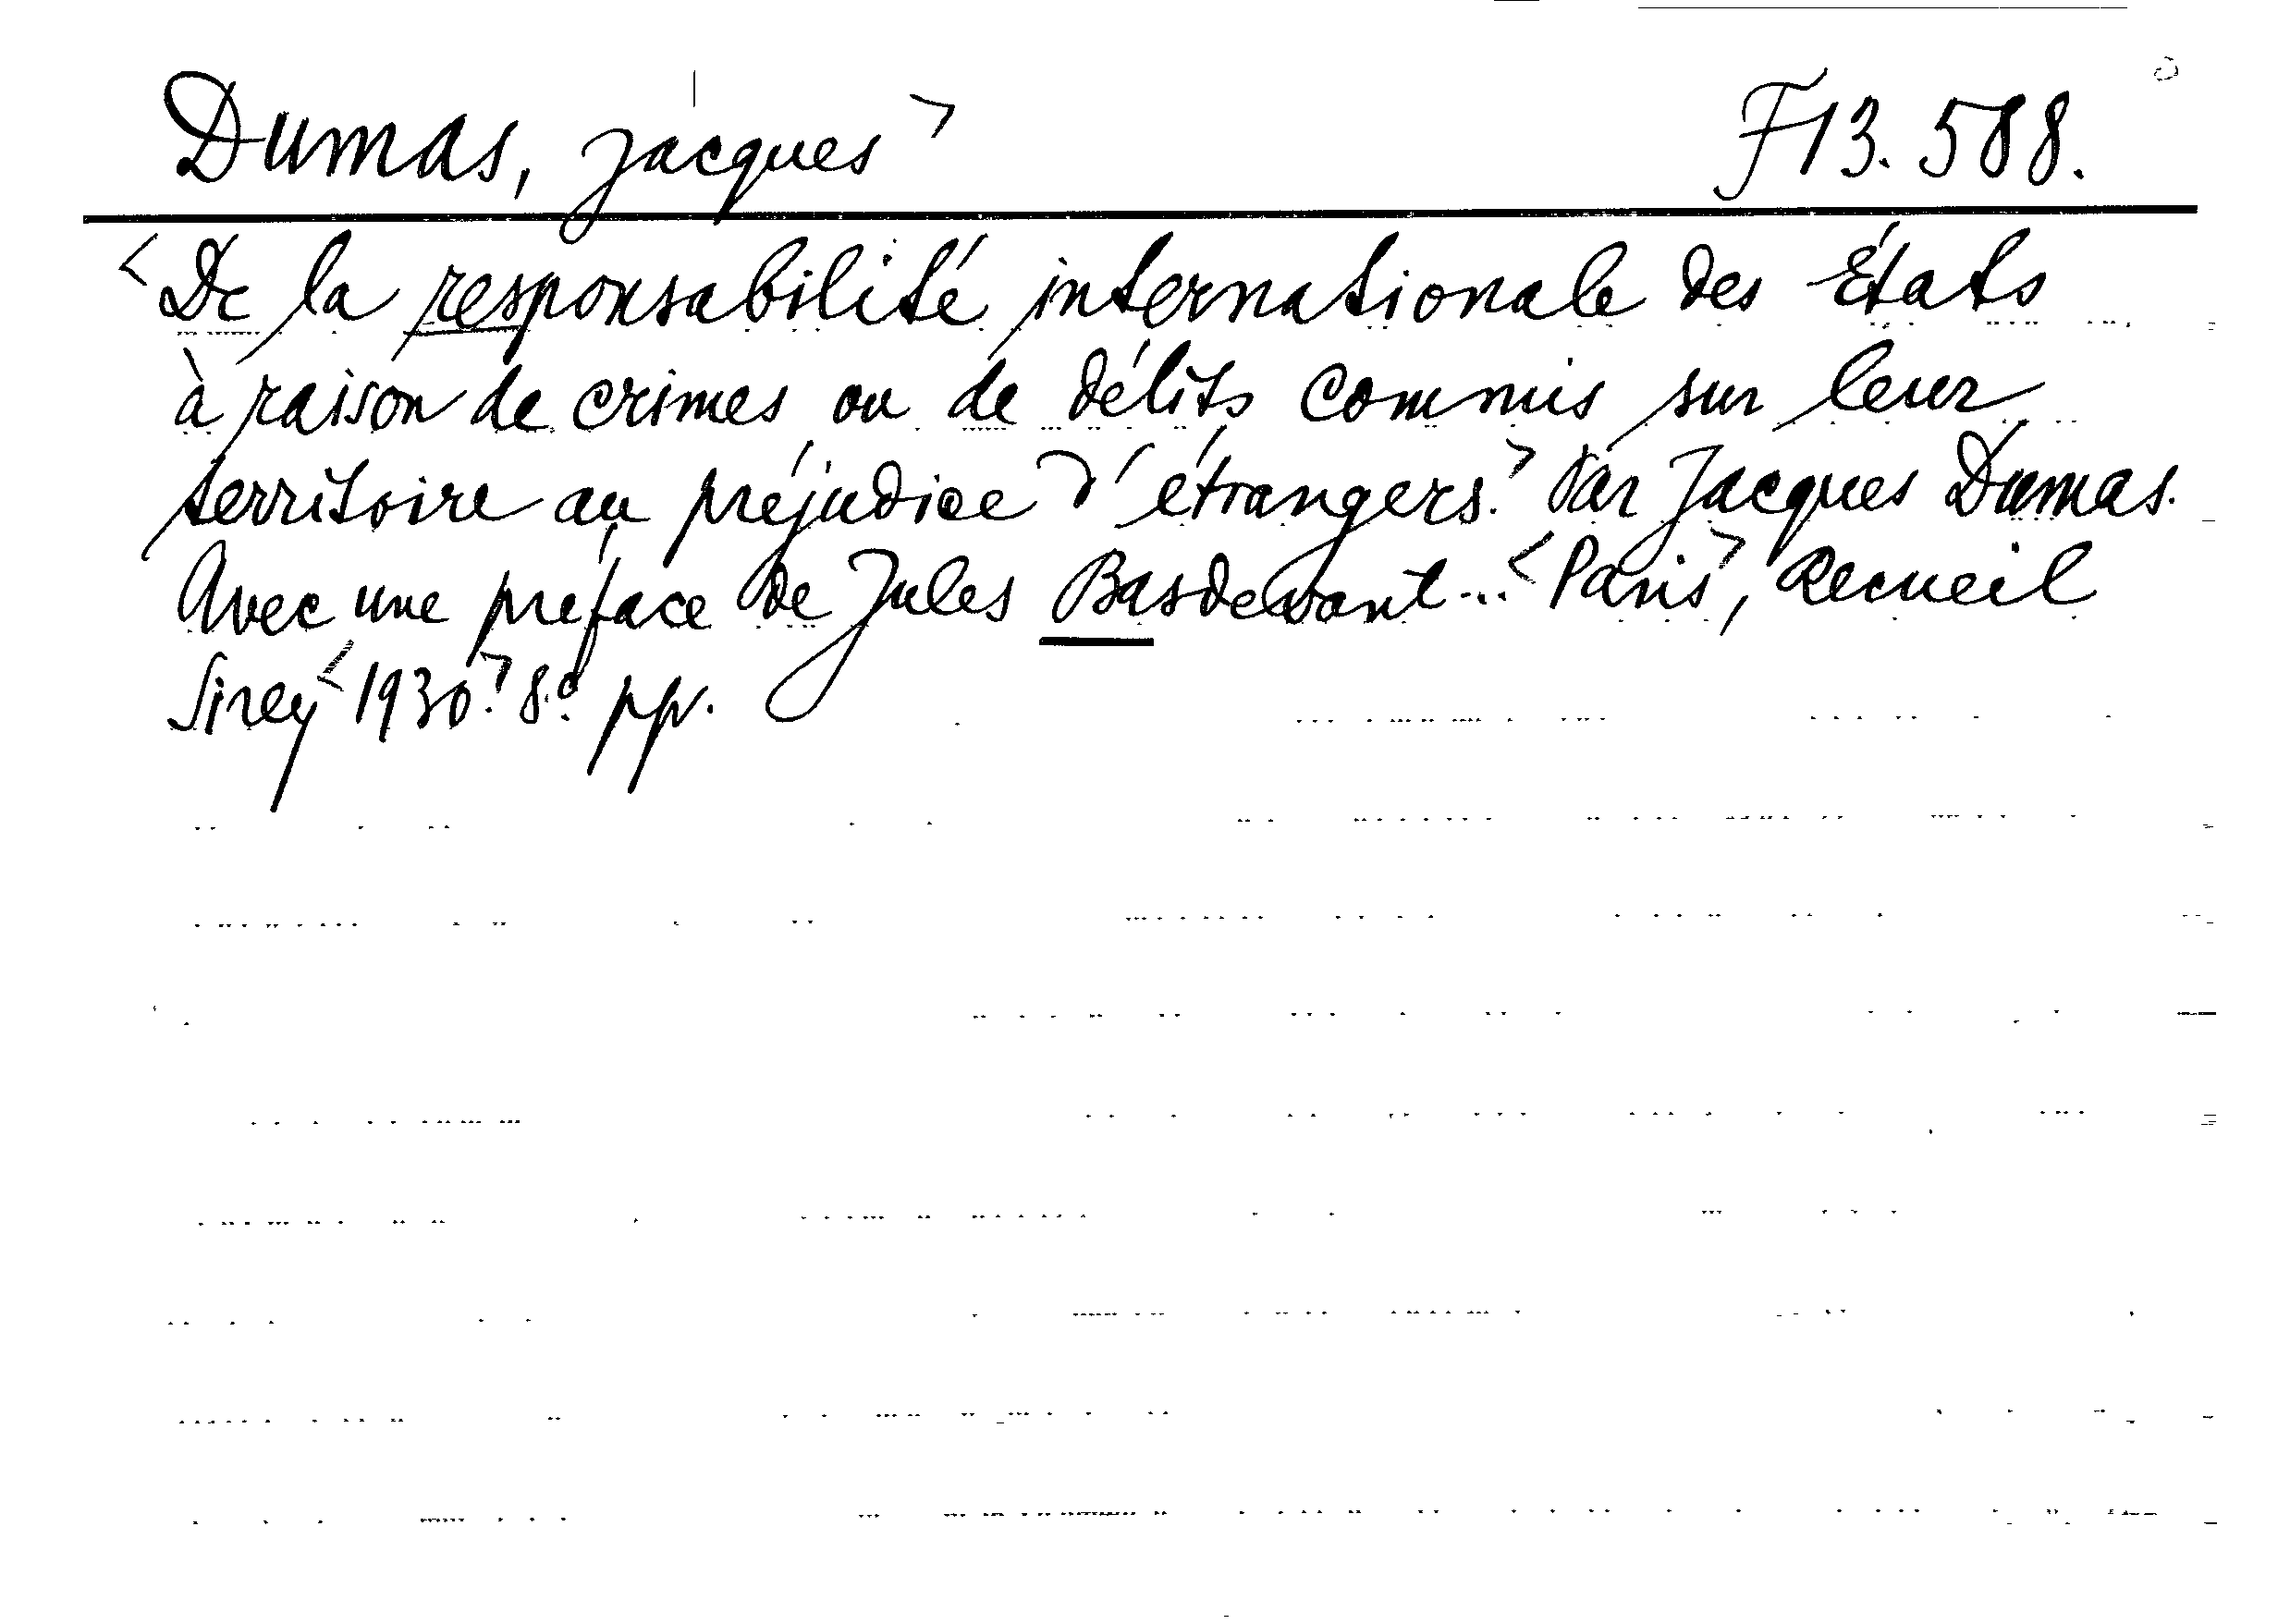 Dumas, Jacques> F13.588.
<De la responsabilité internationale des États
à raison de crimes ou de délits commis sur leur
territoire au préjudice d'étrangers.> Par Jacques Dumas.
Avec une préface de Jules Basdevant... <Paris>, Recueil
Sirey <1930.> 8.° pp.